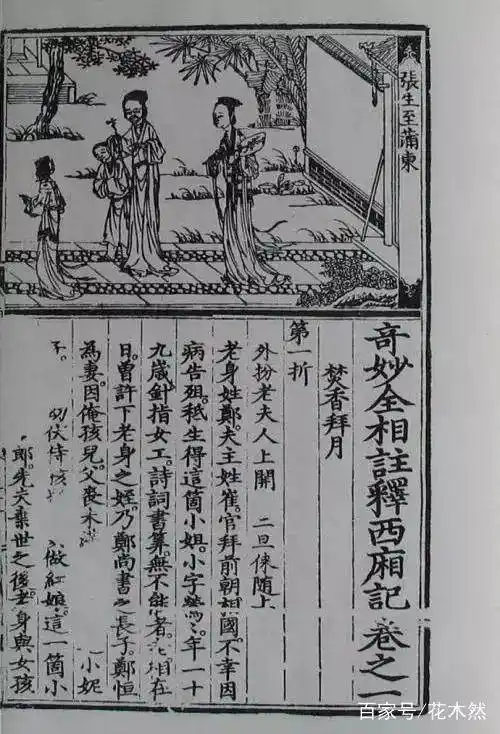 張生至蒲東
奇妙全相註釋西廂記 卷之一
焚香拜月
第一折
外扮老夫人上開 二旦倈隨上
老身姓鄭。夫主姓崔。官拜前朝相國。不幸因
病告殂。秪生得這箇小姐。小字鶯鶯。年一十
九歲。針指女工。詩詞書算。無不能者。相在
日。曾許下老身之姪。乃鄭尚書之長子。鄭恒
為妻。因俺孩兒。父喪未 小妮
伏侍 做紅娘。這一箇小
郎。先夫棄世之後。老身與女孩
百家号/花木然